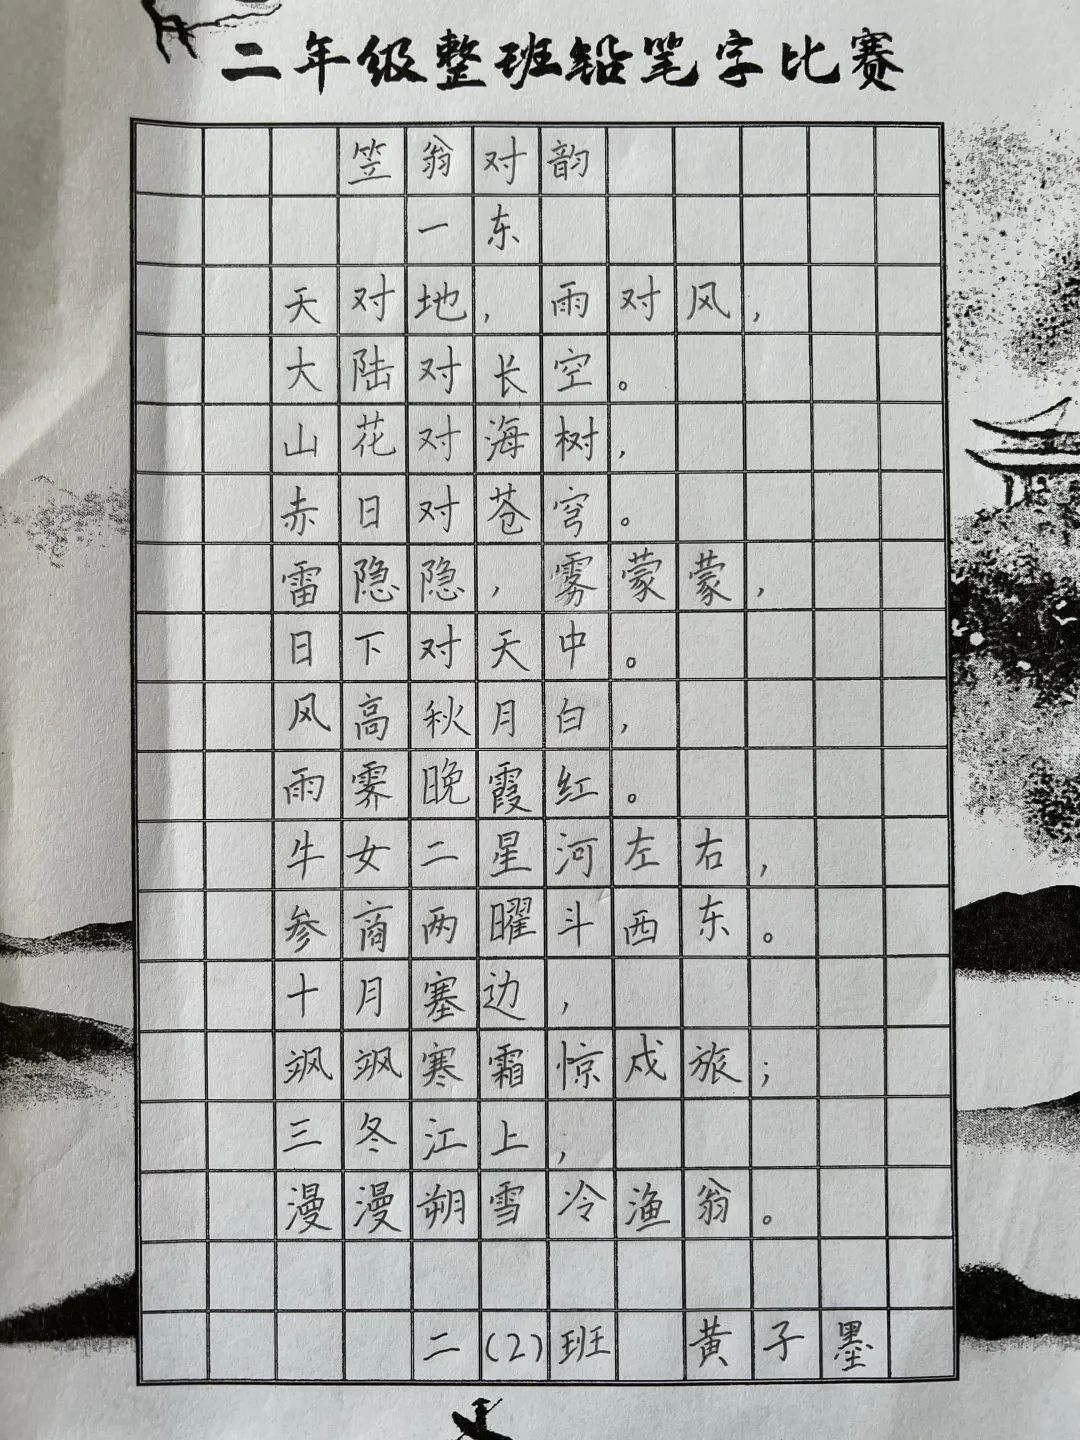 二年级整班铅笔字比赛
笠翁对韵
一东
天对地，雨对风，
大陆对长空。
山花对海树，
赤日对苍穹。
雷隐隐，雾蒙蒙，
日下对天中。
风高秋月白，
雨霁晚霞红。
牛女二星河左右，
参商两曜斗西东。
十月塞边，
飒飒寒霜惊戍旅；
三冬江上；
漫漫朔雪冷渔翁。
二(2)班 黄子墨